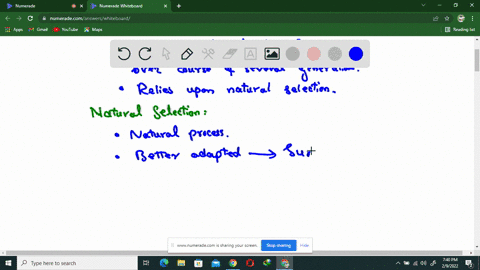 Numerade
Numerade Whiteboard
numerade.com/answers/whiteboard/
Apps
YouTube
Maps
Gmail
Reading list
over course of several generation.
• Relies upon natural selection.
Natural Selection:
• Natural process.
• Better adapted → Sur
www.numerade.com is sharing your screen.
Stop sharing
Hide
Type here to search
7:40 PM
2/9/2022